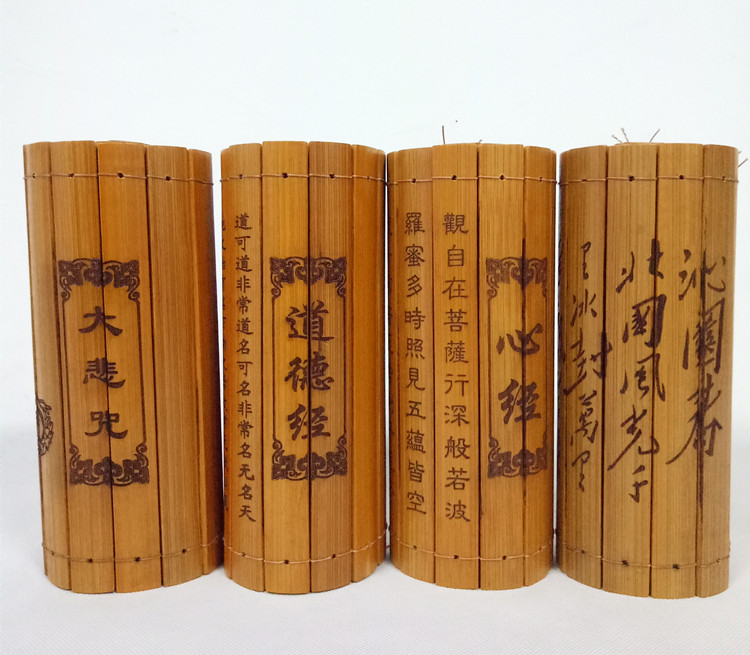 大悲咒
道德经
道可道非常道名可名非常名无名天
心经
觀自在菩薩行深般若波
羅蜜多時照見五蘊皆空
沁園春
北國風光千
里冰封萬里